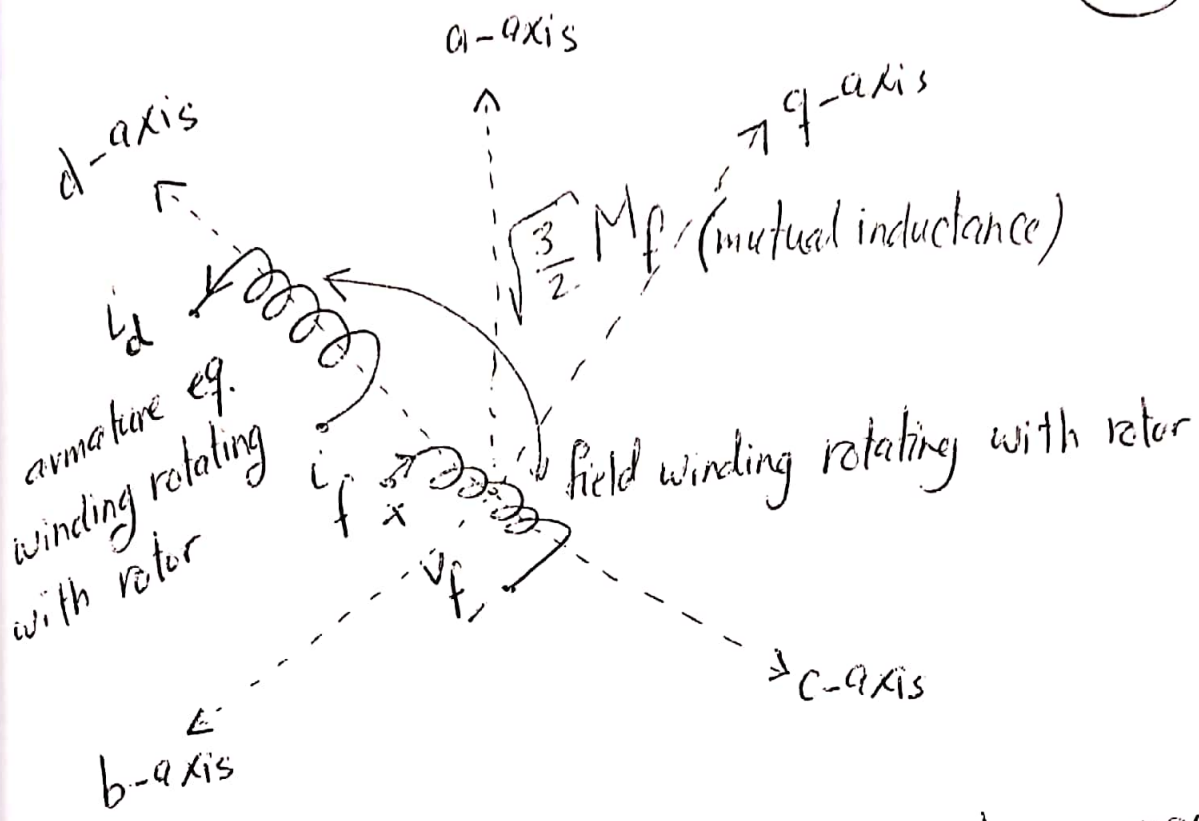 a-axis
q-axis
d-axis
√3/2 Mf (mutual inductance)
id
armature eq.
winding rotating
with rotor
if
vf
field winding rotating with rotor
c-axis
b-axis